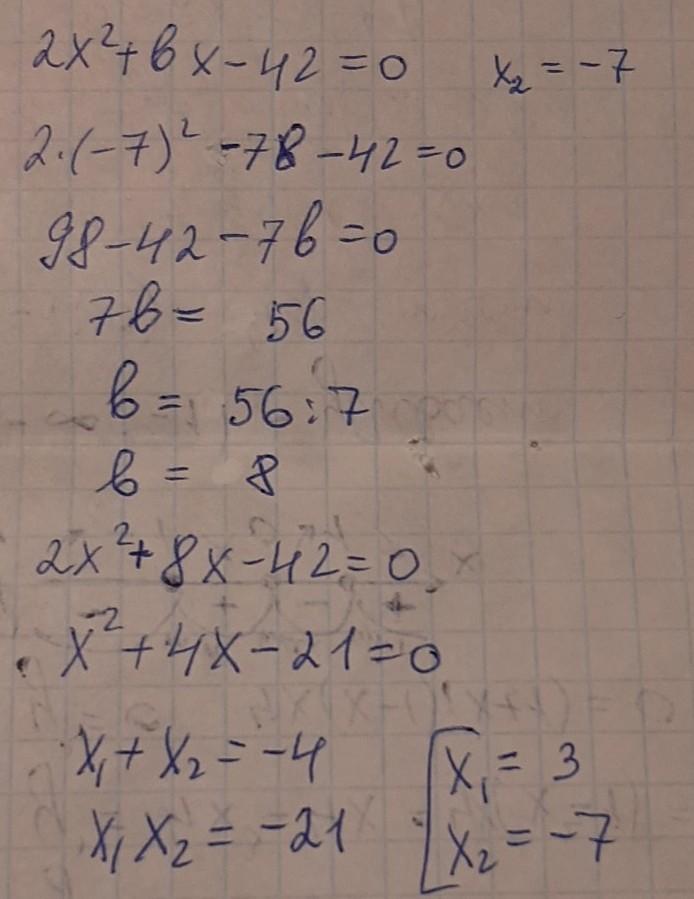 2x²+bx-42=0 x₂=-7
2·(-7)²-7b-42=0
98-42-7b=0
7b= 56
b= 56:7
b= 8
2x²+8x-42=0
x²+4x-21=0
x₁+x₂=-4 [x₁=3
x₁x₂=-21 x₂=-7